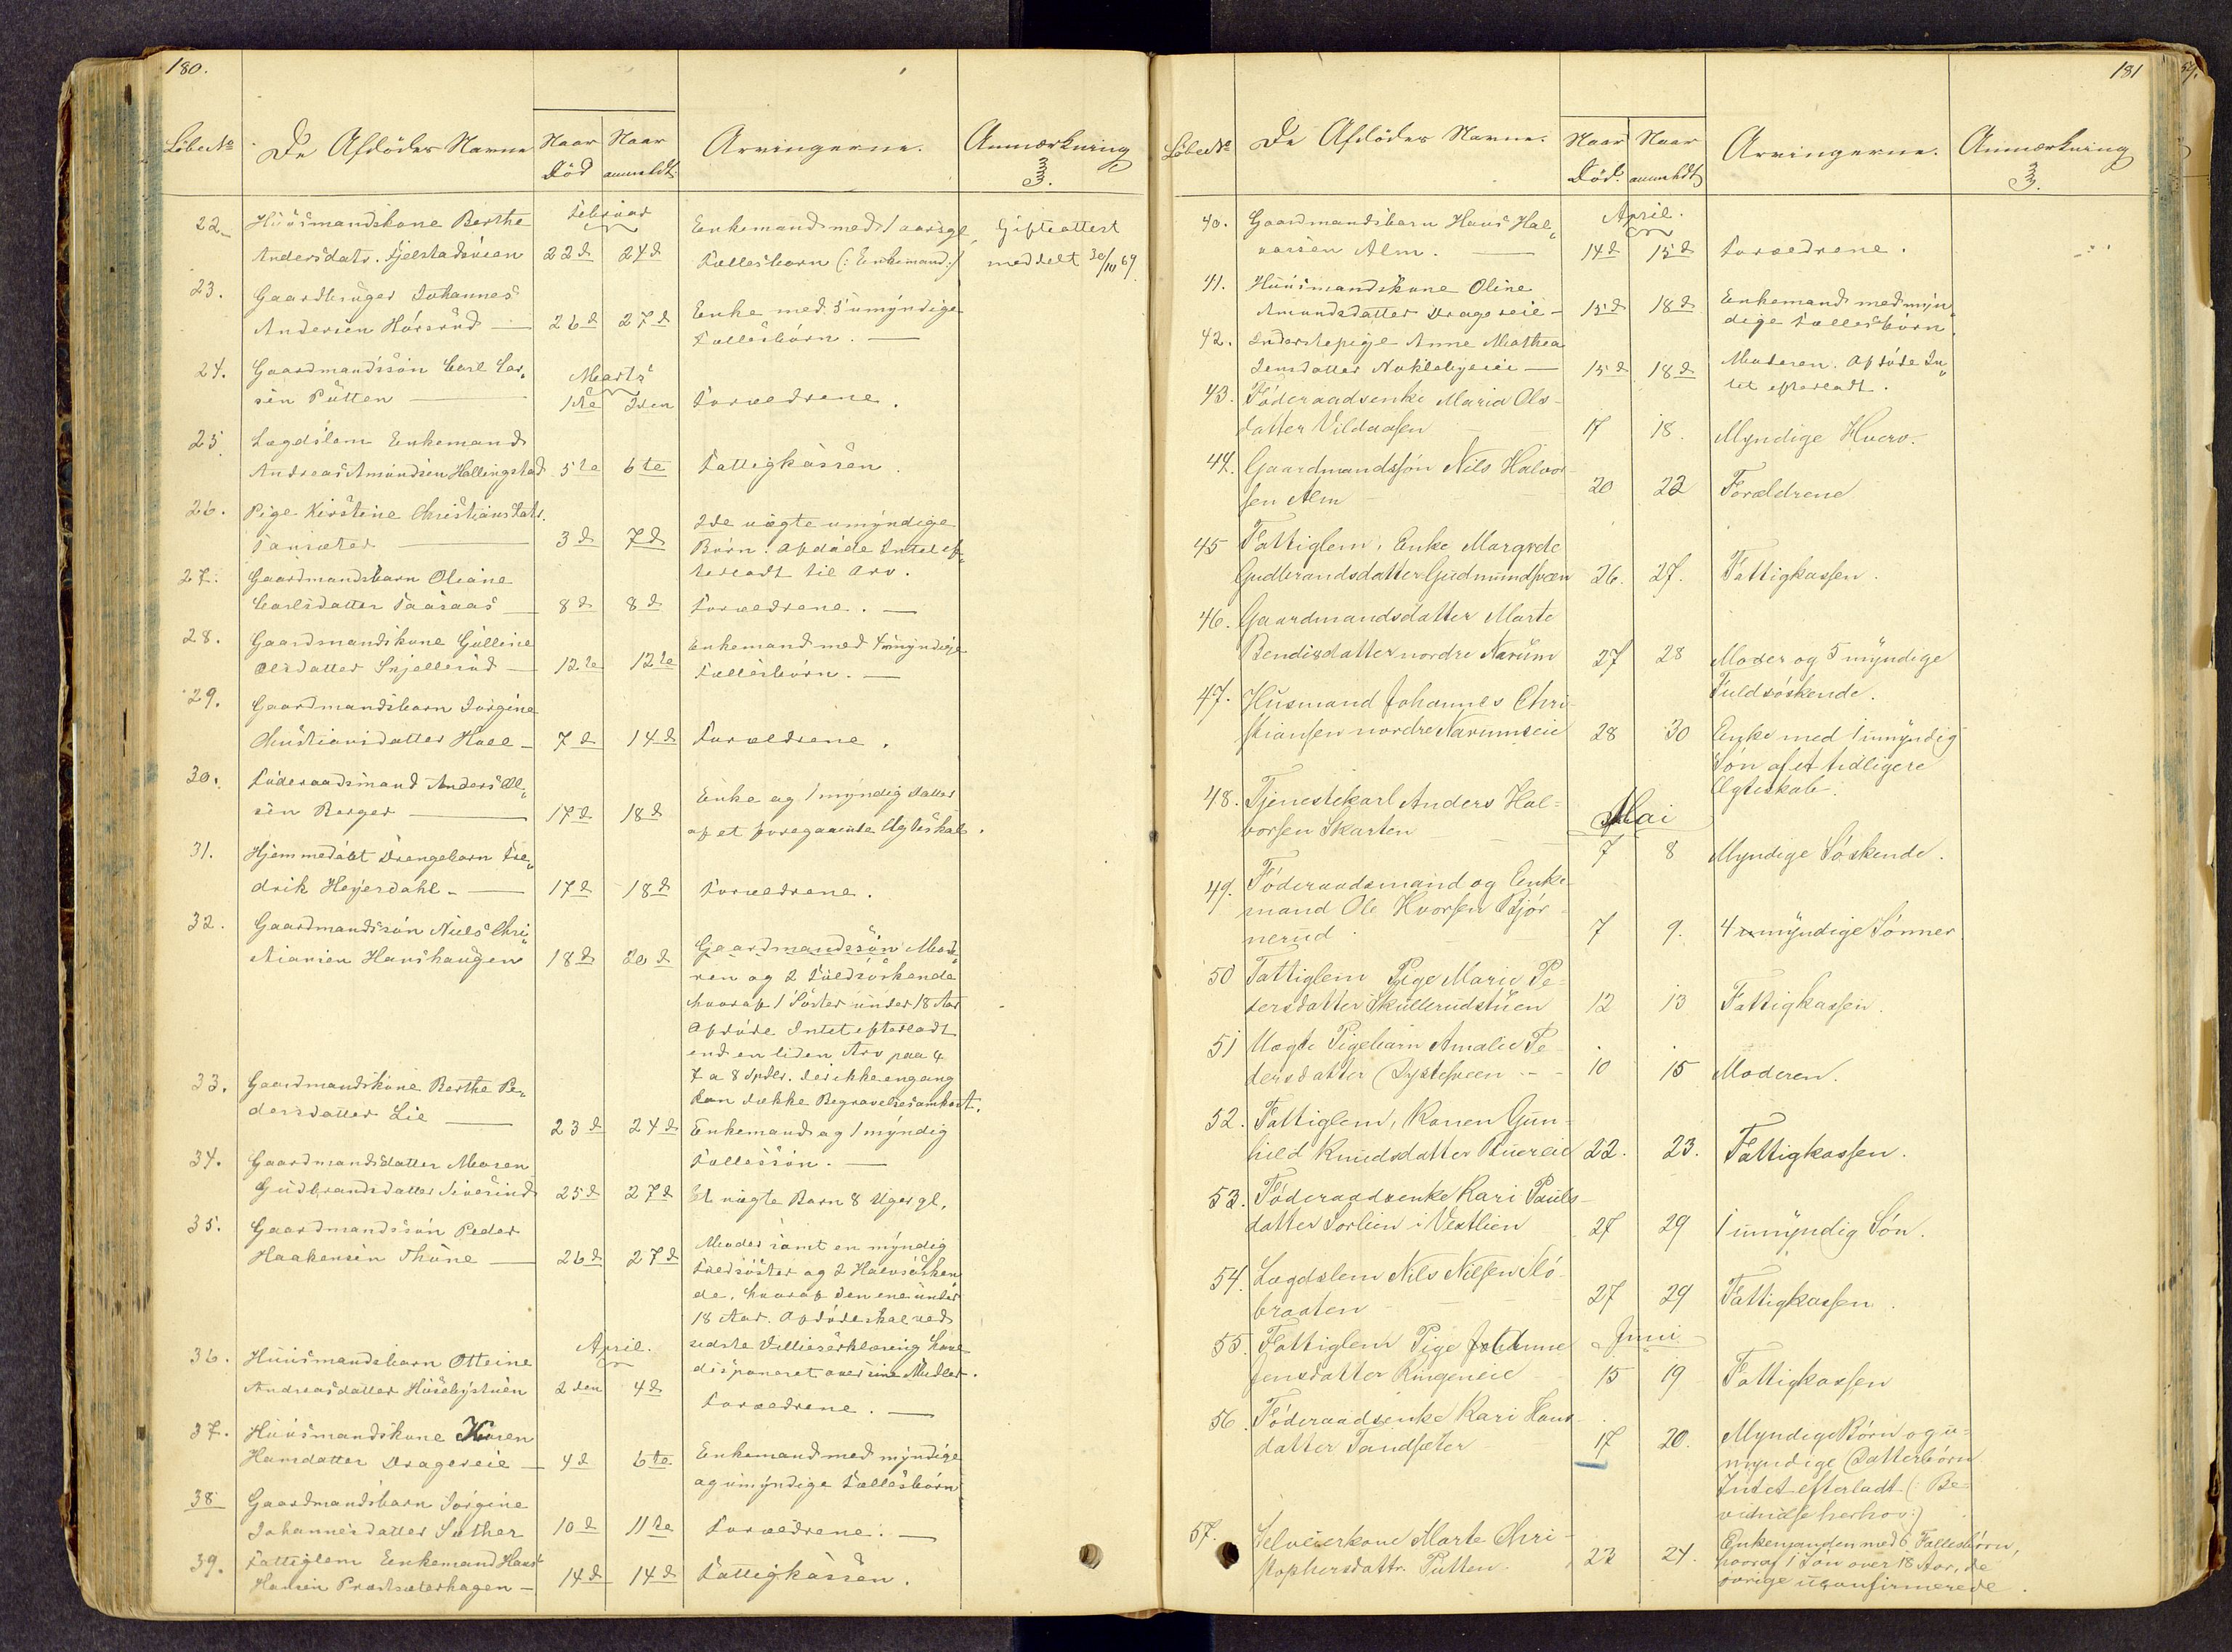 180.
Löbe No
De Afdödes Navne
Naar Död
Naar anmeldt
Arvingerne.
Anmærkning
3.
22.
Huusmandskone Berthe
Februar
Enkemand med 1 aarsgl.
Gifteattest
Andersdatr. Fjelstadsveen
22d
24d
Fællesbarn (: Enkemand:)
meddelt 30/10 69.
23.
Gaardbruger Johannes
Andersen Hörsrud
26d
27d
Enke med 5 umyndige
Fællesbörn.
24.
Gaardmandssön Carl Lar„
Marts
sen Putten
1ste
2den
Forældrene.
25.
Lægdslem Enkemand
Andreas Amundsen Hallingstad
5te
6te
Fattigkassen.
26.
Pige Kirstine Christiansdatr.
3d
7d
2de uægte umyndige
Börn. Afdöde Intet ef„
terladt til Arv.
27.
Gaardmandsbarn Oleane
Carlsdatter Paasaas
8d
8d
Forældrene.
28.
Gaardmandskone Gulline
Olsdatter Snjellerud
12te
12te
Enkemand med 4 umyndige
Fællesbörn.
29.
Gaardmandsbarn Jorgine
Christiansdatter Hval
7d
14d
Forældrene.
30.
Föderaadsmand Anders Ol„
sen Berger
17d
18d
Enke og 1 myndig Datter
af et foregaaende Ægteskab.
31.
Hjemmedöbt Drengebarn Fre„
drik Heyerdahl
17d
18d
Forældrene.
32.
Gaardmandssön Niels Chri„
stiansen Hanshaugen
18d
20d
Gaardmandssön Mode„
ren og 2 Fuldsöskende
hvoraf 1 Söster under 18 Aar
Afdöde Intet efterladt
end en liden Arv paa 4
7 a 8 Spdlr. der ikke engang
kan dække Begravelsesomkost.
33.
Gaardmandskone Berthe Pe„
dersdatter Lie
23d
24d
Enkemand og 1 myndig
Fællessön.
34.
Gaardmandsdatter Maren
Gudbrandsdatter Siverind
25d
27d
Et uægte Barn 8 Uger gl.
35.
Gaardmandssön Peder
Haakensen Thune
26d
27d
Moder samt en myndig
Fuldsöster og 2 Halvsösken
de, hvoraf den ene under
18 Aar. Afdöde skal ved
sidste Villieserklæring have
disponeret over sine Midler.
36.
Huusmandsbarn Otteine
April.
Andreasdatter Husebystuen
2den
4d
Forældrene.
37.
Huusmandskone Karen
Hansdatter Dragereie
4d
6te
Enkemand med myndige
og umyndige Fællesbörn
38
Gaardmandsbarn Jörgine
Johannesdatter Sather
10d
11te
Forældrene.
39.
Fattiglem Enkemand Hans
Hansen Prestsæterhagen
14d
14d
Fattigkassen.
181
Löbe No
De Afdödes Navne.
Naar Död.
Naar anmeldt
Arvingerne.
Anmærkning
3.
40.
Gaardmandsbarn Hans Hal„
April.
vorsen Alm.
14d
15d
Forældrene.
41.
Huusmandskone Oline
Amundsdatter Dragereie
15d
18d
Enkemand med myn„
dige Fællesbörn
42.
Inderstepige Anne Mathea
Jensdatter Naklebyeiei
15d
18d
Moderen. Afdöde In„
tet efterladt.
43.
Föderaadsenke Maria Ols-
datter Vildaasen
17
18.
Myndige Huero.
44.
Gaardmandssön Nils Halvor
sen Alm
20
22
Forældrene
45
Fattiglem, Enke Margrete
Gudbrandsdatter Gudmundsveen
26.
27.
Fattigkassen.
46.
Gaardmandsdatter Marte
Bendixdatter nordre Narum
27
28
Moder og 5 myndige
Fuldsöskende.
47.
Husmand Johannes Chri-
stiansen nordre Narumseie
28
30
Enke med 1 umyndig
Sön af et tidligere
Ægteskab.
48.
Tjenestekarl Anders Hal-
Mai
vorsen Skarten
7
8
Myndige Söskende.
49.
Föderaadsmand og Enke-
mand Ole Hvorsen Björ-
nerud
7
9.
4 myndige Sönner
50
Fattiglem Pige Marie Pe-
dersdatter Skullerudstuen
12
13
Fattigkassen.
51
Uægte Pigebarn Amalie Pe-
dersdatter Dystesveen
10
15
Moderen.
52.
Fattiglem, Konen Gun-
hild Knudsdatter Ruereie
22.
23.
Fattigkassen.
53.
Föderaadsenke Kari Pauls-
datter Sorlien i Vestlien
27
29
1 umyndig Sön.
54.
Lægdslem Nils Nilsen Mö-
braaten
27
29
Fattigkassen.
55.
Fattiglem Pige Johanne
Juni
Jensdatter Ringeneie
15
19
Fattigkassen
56.
Föderaadsenke Kari Hans-
datter Tandsæter
17
20.
Myndige Börn og u-
myndige Datterbörn.
Intet efterladt (: Be-
vidnelse herhos:)
57.
Selveierkone Marte Chri-
stophersdattr. Putten.
22
24.
Enkemanden med 6 Fællesbörn,
hvoraf 1 Sön over 18 Aar, de
övrige uconfirmerede.